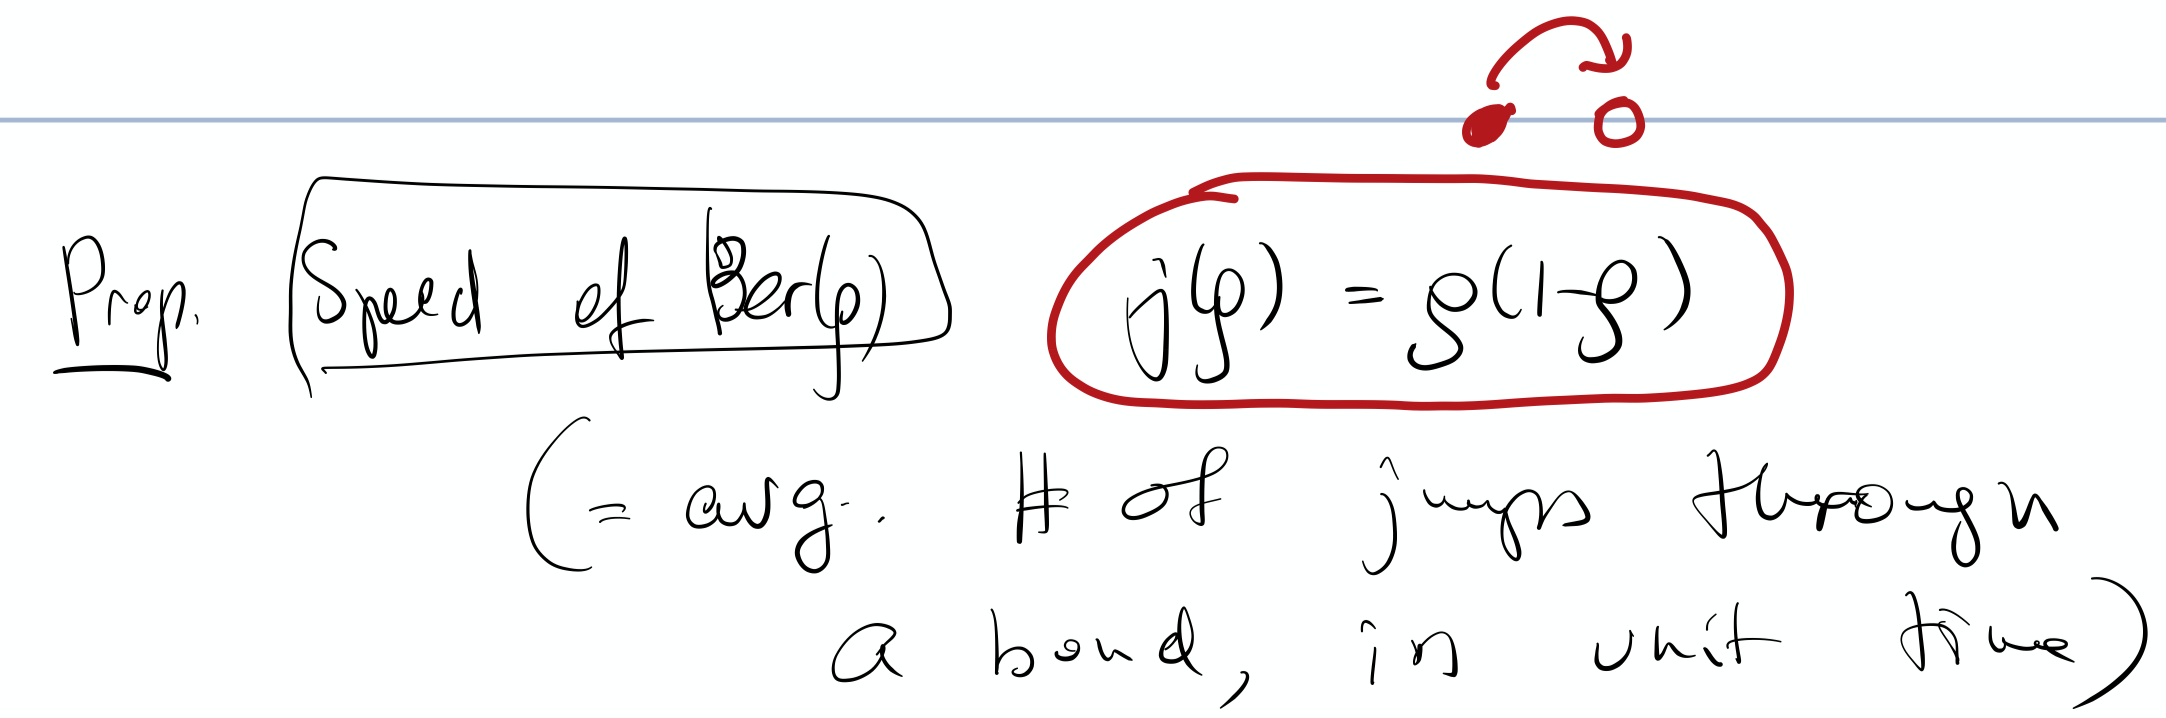 Prop. Speed of Ber(ρ) j(ρ) = ρ(1-ρ)
(= avg. # of jumps through
a bond, in unit time)